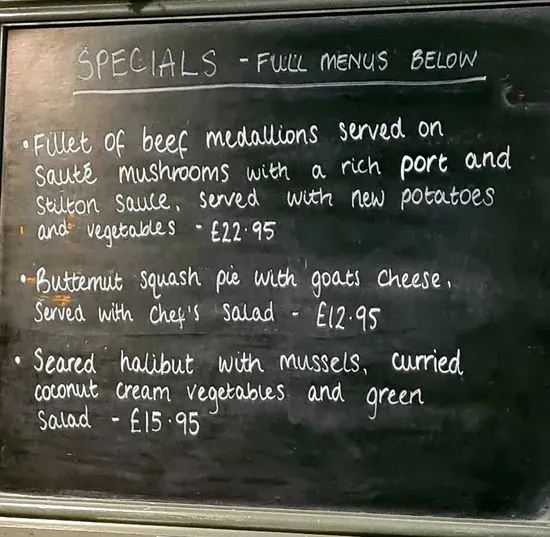 SPECIALS - FULL MENUS BELOW
• Fillet of beef medallions served on
sauté mushrooms with a rich port and
stilton sauce, served with new potatoes
and vegetables - £22.95
• Butternut squash pie with goats cheese.
Served with chef's salad - £12.95
• Seared halibut with mussels, curried
coconut cream vegetables and green
salad - £15.95